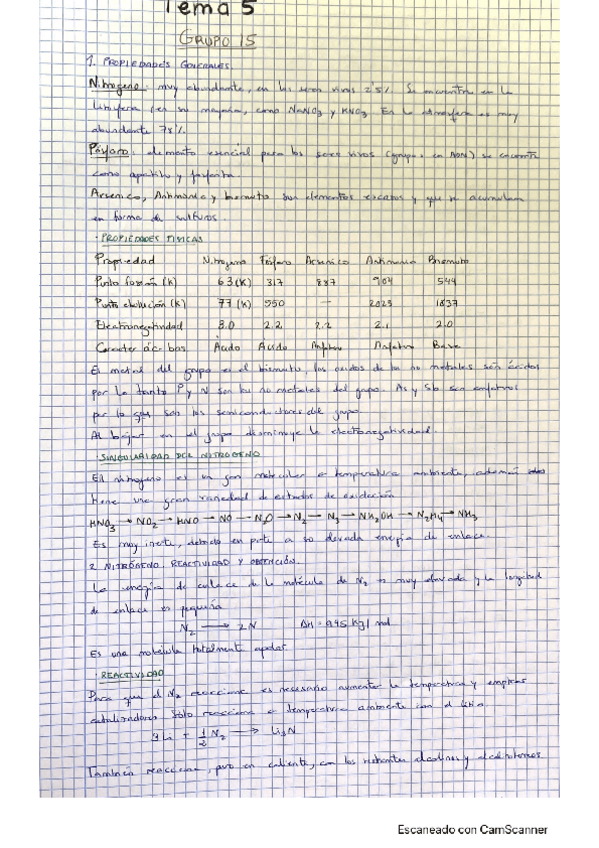 Tema 5
GRUPO 15
1. PROPIEDADES GENERALES
Nitrógeno: muy abundante, en los seres vivos 2'5%. Se encuentra en la
litosfera en su mayoría, como NaNO3 y KNO3. En la atmósfera es muy
abundante 78%.
Fósforo: elemento esencial para los seres vivos (grupos en ADN) se encuentra
como apatito y fosforita.
Arsénico, Antimonio y bismuto son elementos escasos y que se acumulan
en forma de sulfuros.
· PROPIEDADES FÍSICAS
Propiedad Nitrógeno Fósforo Arsénico Antimonio Bismuto
Punto fusión (K) 63 (K) 317 887 904 544
Punto ebullición (K) 77 (K) 550 — 2023 1837
Electronegatividad 3.0 2.2 2.2 2.1 2.0
Carácter ác. bas Ácido Ácido Anfótero Anfótero Base
El metal del grupo es el bismuto, los óxidos de los no metales son ácidos
por lo tanto P y N son los no metales del grupo. As y Sb son anfóteros
por lo que son los semiconductores del grupo.
Al bajar en el grupo disminuye la electronegatividad.
· SINGULARIDAD DEL NITRÓGENO
El nitrógeno es un gas molecular a temperatura ambiente, además
tiene una gran variedad de estados de oxidación
HNO3 → NO2 → HNO → NO → N2O → N2 → N3 → NH2OH → N2H4 → NH3
Es muy inerte, debido en parte a su elevada energía de enlace.
2. NITRÓGENO. REACTIVIDAD Y OBTENCIÓN.
La energía de enlace de la molécula de N2 es muy elevada y la longitud
de enlace es pequeña
N2 → 2N ΔH = 945 KJ/mol
Es una molécula totalmente apolar
· REACTIVIDAD
Para que el N2 reaccione es necesario aumentar la temperatura y emplear
catalizadores. Sólo reacciona a temperatura ambiente con el litio
3Li + 1/2 N2 → Li3N
También reacciona, pero en caliente, con los restantes alcalinos y alcalinotérreos
Escaneado con CamScanner